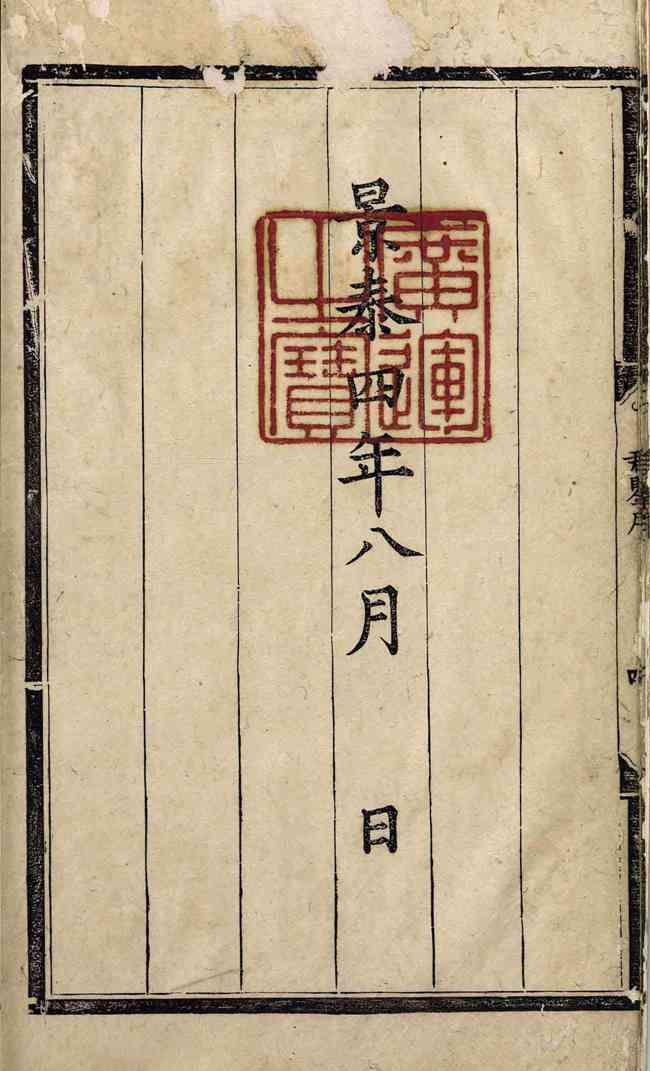 景泰四年八月 日
廣運
之寶